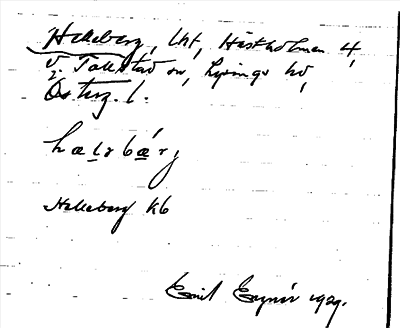 Helleberg, lht, Hästholmen 4,
V. Tollstad sn, Lysings hd,
Österg. l.
hælobærj
Helleberg kb
Emil 1929.